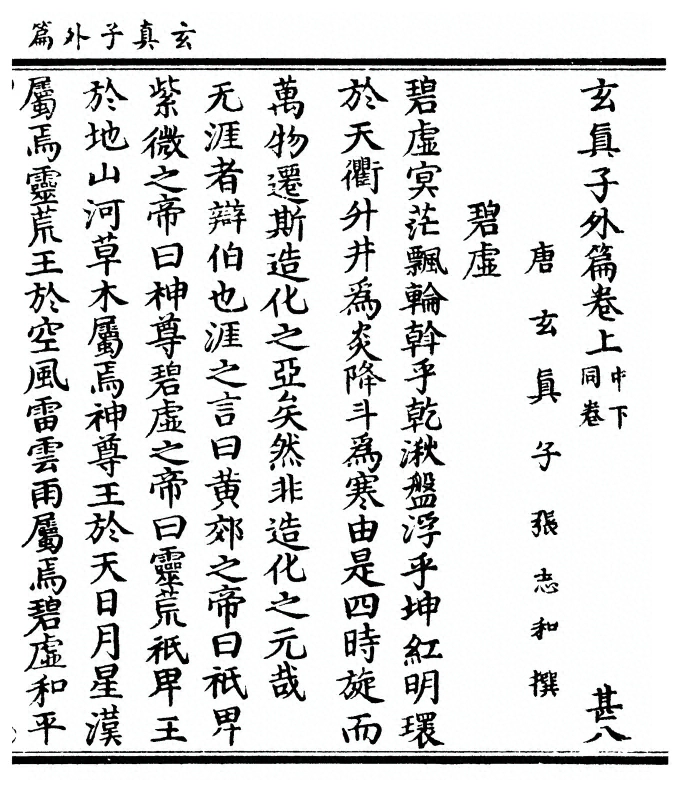 玄真子外篇
玄眞子外篇卷上中下同卷 甚八
唐玄眞子張志和撰
碧虛
碧虛冥茫飄輪斡乎乾湫盤浮乎坤紅明環
於天衢升井爲炎降斗爲寒由是四時旋而
萬物遷斯造化之亞矣然非造化之元哉
无涯者辯伯也涯之言曰黄郊之帝曰祇卑
紫微之帝曰神尊碧虛之帝曰靈荒祇卑王
於地山河草木屬焉神尊王於天日月星漢
屬焉靈荒王於空風雷雲雨屬焉碧虛和平